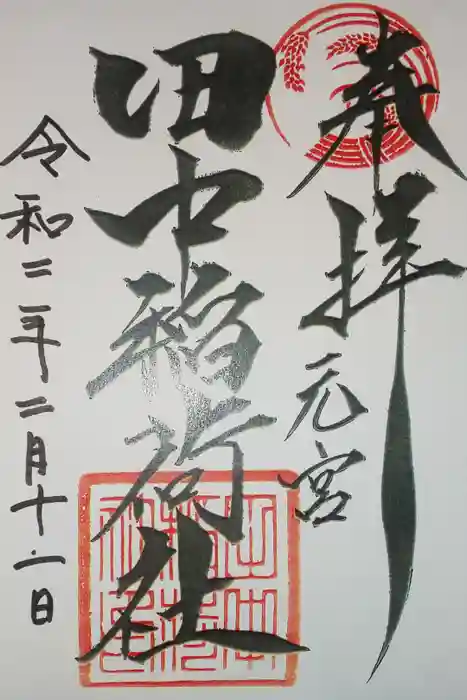 奉拝
元宮
田中稲荷社
令和二年十二月十一日